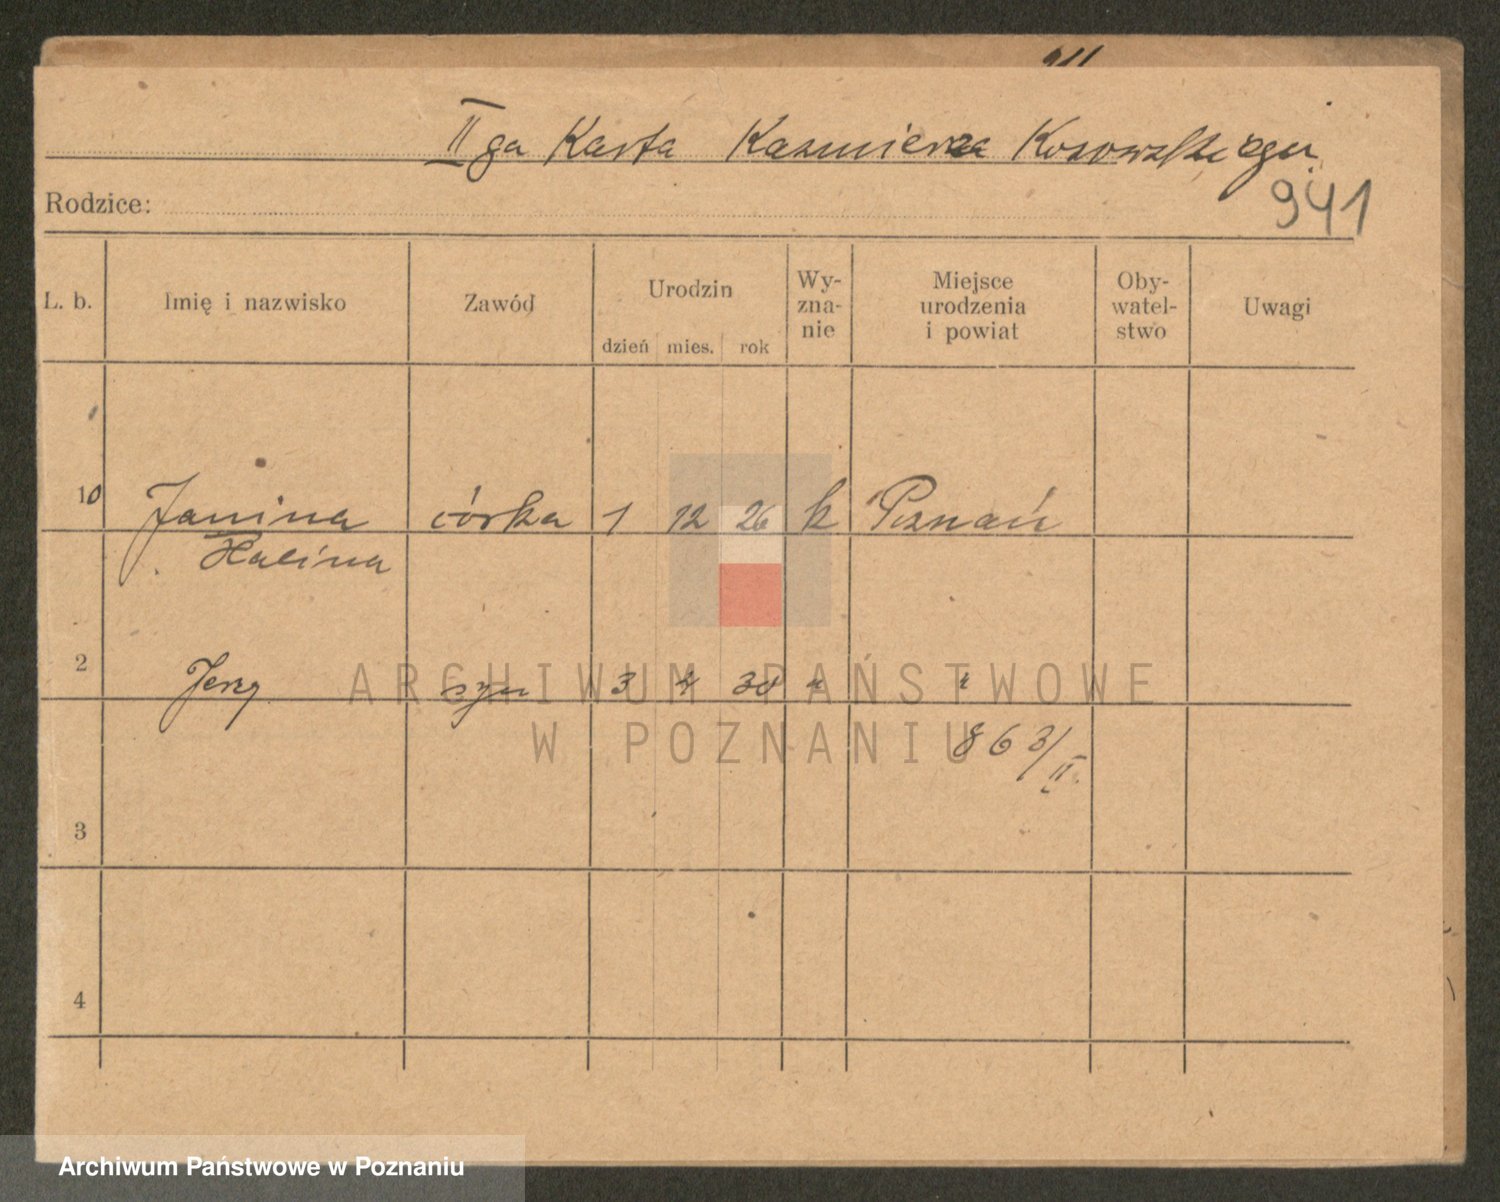 IIga Karta Kazmierza Kosowskiego
Rodzice:
941
L. b. Imię i nazwisko Zawód Urodzin Wy-
zna-
nie Miejsce
urodzenia
i powiat Oby-
watel-
stwo Uwagi
dzień mies. rok
10 Janina córka 1 12 26 k Poznań
Halina
2 Jerzy syn 3 4 30 " "
ARCHIWUM PAŃSTWOWE
W POZNANIU
863/II.
3
4
Archiwum Państwowe w Poznaniu